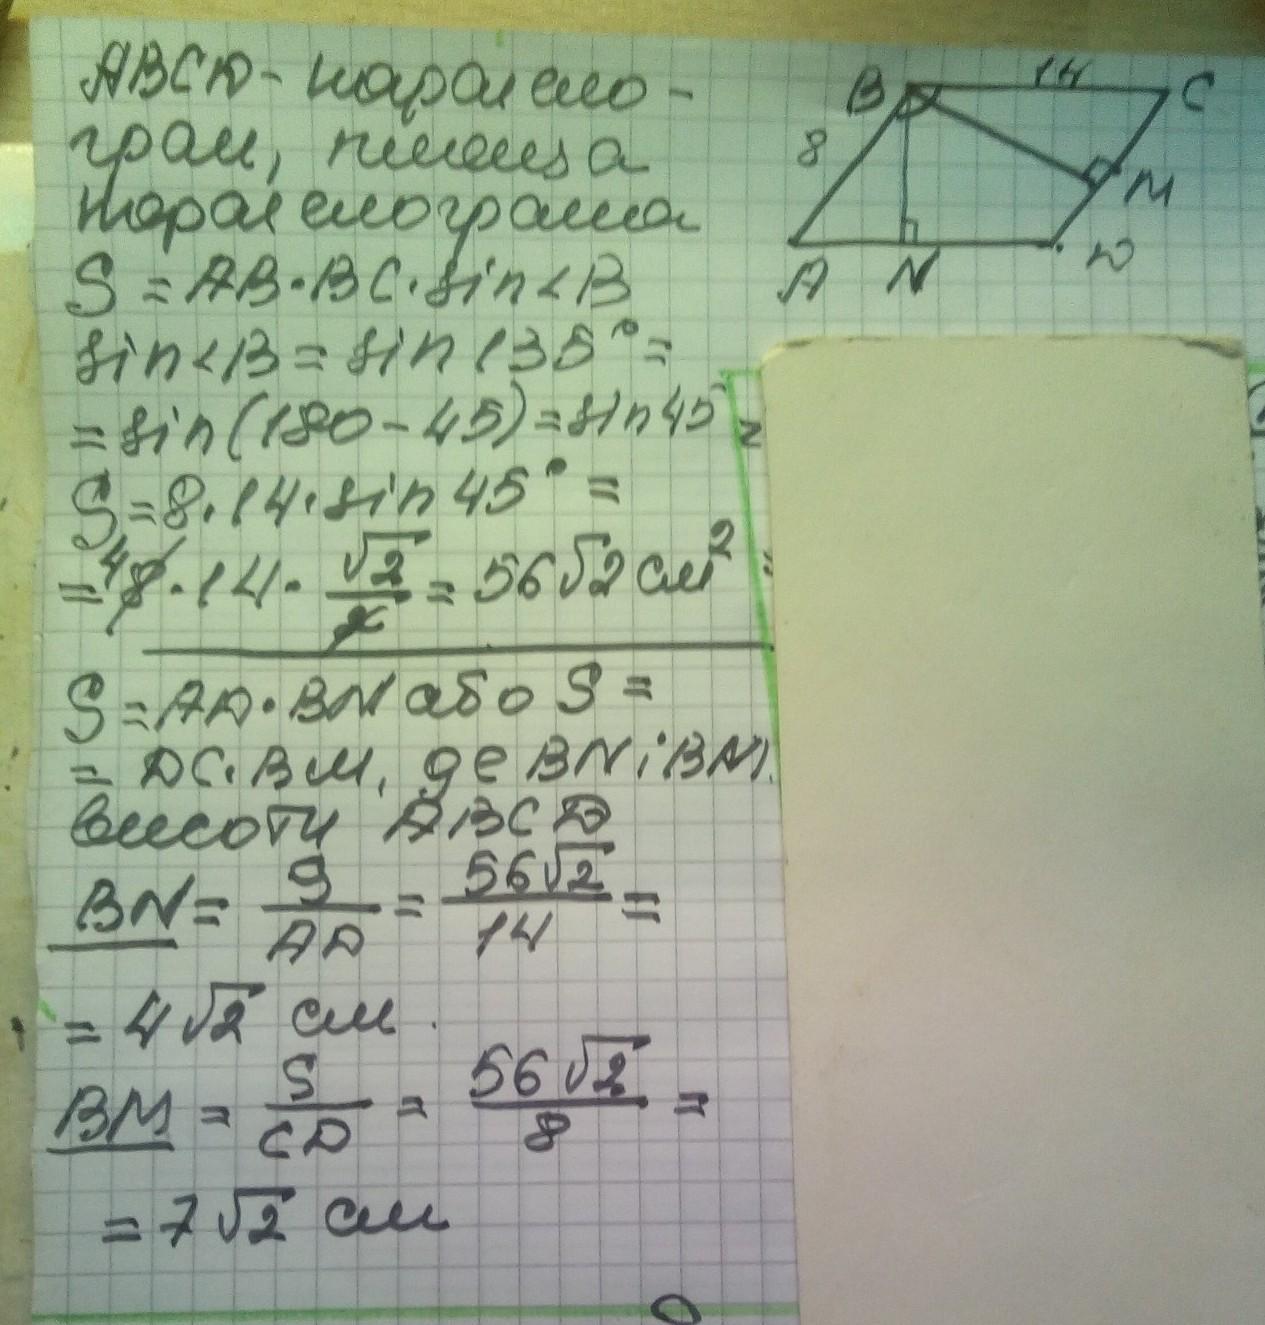 ABCD - парале­ло-
грам, площа
паралелограма
S = AB · BC · sin<B
sin<B = sin 135° =
= sin(180 - 45) = sin 45°
S = 8 · 14 · sin 45° =
= 8 · 14 · √2/2 = 56√2 см²
S = AD · BN або S =
= DC · BM, де BN і BM
висоти ABCD
BN = S/AD = 56√2/14 =
= 4√2 см.
BM = S/CD = 56√2/8 =
= 7√2 см
B 14 C
8
M
A N D